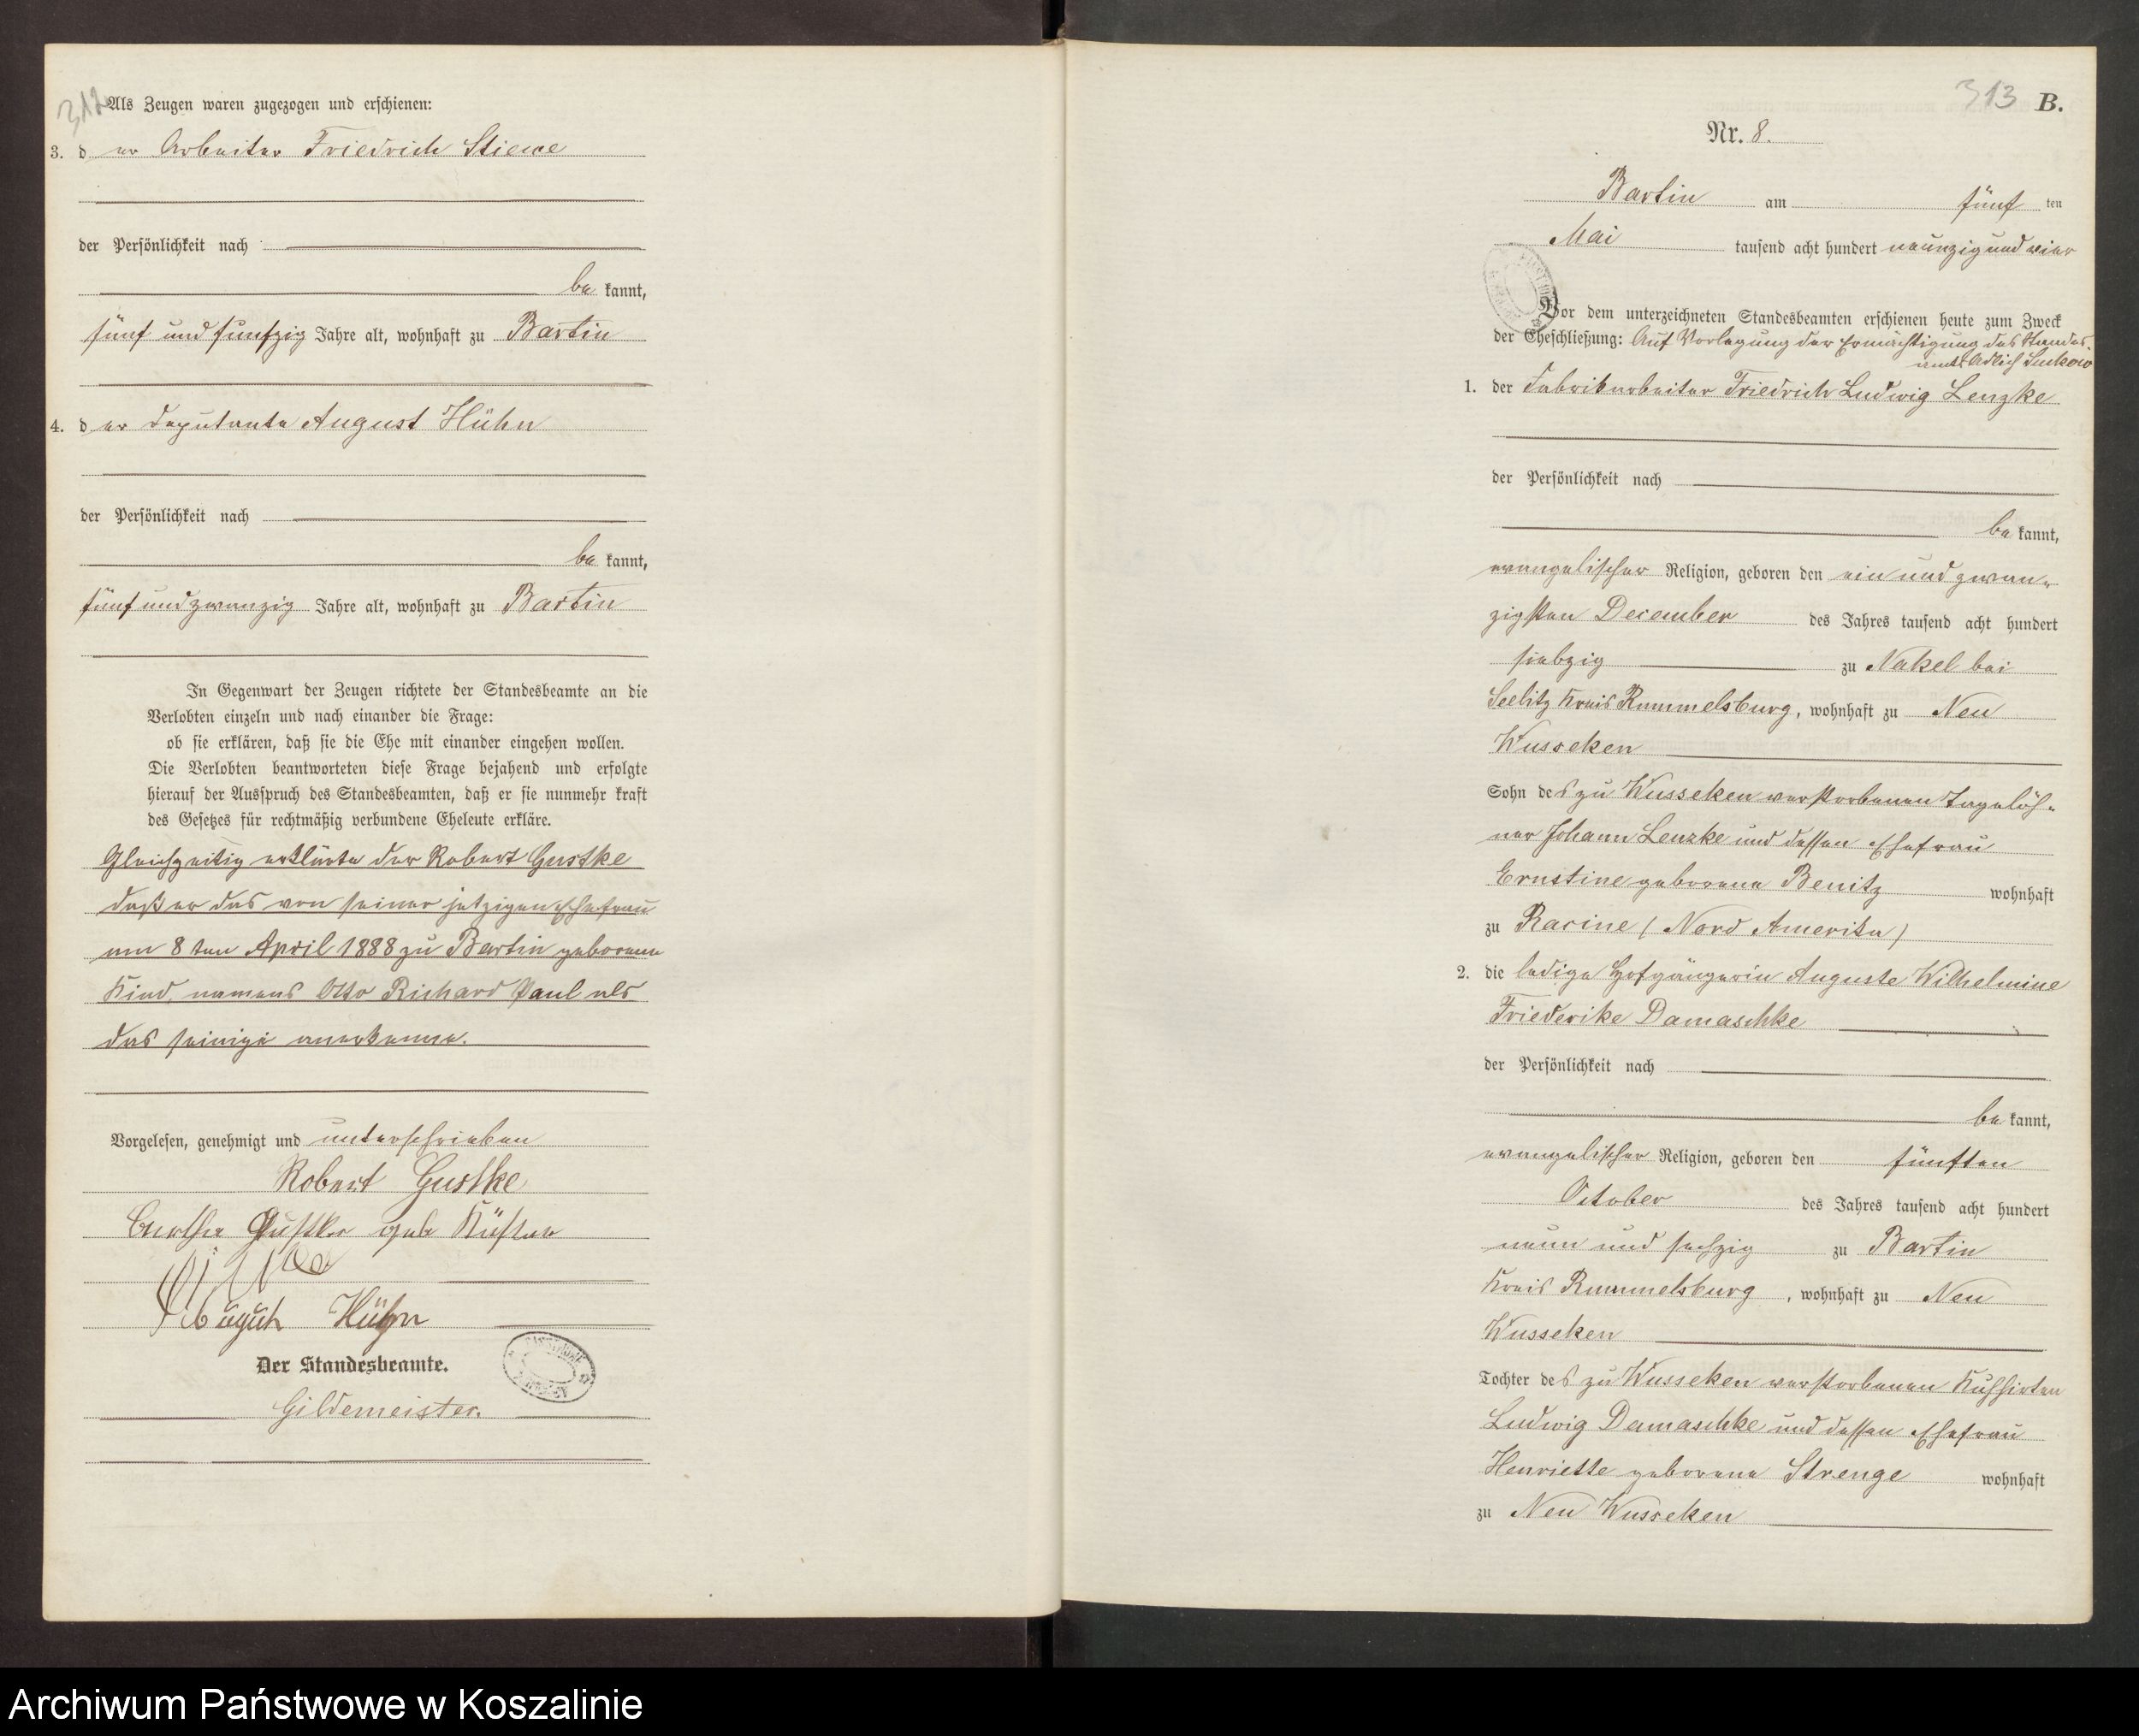 312
Als Zeugen waren zugezogen und erschienen:
3. der Arbeiter Friedrich
der Persönlichkeit nach
be kannt,
fünf und funfzig Jahre alt, wohnhaft zu Bartin
4. der Deputante August Hühn
der Persönlichkeit nach
be kannt,
fünf und zwanzig Jahre alt, wohnhaft zu Bartin
In Gegenwart der Zeugen richtete der Standesbeamte an die
Verlobten einzeln und nach einander die Frage:
ob sie erklären, daß sie die Ehe mit einander eingehen wollen.
Die Verlobten beantworteten diese Frage bejahend und erfolgte
hierauf der Ausspruch des Standesbeamten, daß er sie nunmehr kraft
des Gesetzes für rechtmäßig verbundene Eheleute erkläre.
Gleichzeitig erklärte der Robert Gustke
daß er das von seiner jetzigen Ehefrau
am 8ten April 1888 zu Bartin geborene
Kind, namens Otto Richard Paul als
das seinige anerkenne.
Vorgelesen, genehmigt und unterschrieben
Robert Gustke
Bertha Gustke geb Küster
August Hühn
Der Standesbeamte.
Gildemeister.
313 B.
Nr. 8.
Bartin am fünf ten
Mai tausend acht hundert neunzig und vier
Vor dem unterzeichneten Standesbeamten erschienen heute zum Zweck
der Eheschließung: Auf Vorlegung der Ermächtigung des Standes-
amts Adlich Suckow
1. der Fabrikarbeiter Friedrich Ludwig Lenzke
der Persönlichkeit nach
be kannt,
evangelischer Religion, geboren den ein und zwan-
zigsten December des Jahres tausend acht hundert
siebzig zu Nakel bei
Seelitz Kreis Rummelsburg, wohnhaft zu Neu
Wusseken
Sohn des zu Wusseken verstorbenen Tagelöh-
ner Johann Lenzke und dessen Ehefrau
Ernstine geborene Benitz wohnhaft
zu Racine (Nord Amerika)
2. die ledige Hofgängerin Auguste Wilhelmine
Friederike Damaschke
der Persönlichkeit nach
be kannt,
evangelischer Religion, geboren den fünften
October des Jahres tausend acht hundert
neun und sechzig zu Bartin
Kreis Rummelsburg, wohnhaft zu Neu
Wusseken
Tochter des zu Wusseken verstorbenen Kuhhirten
Ludwig Damaschke und dessen Ehefrau
Henriette geborene Strenge wohnhaft
zu Neu Wusseken
Archiwum Państwowe w Koszalinie